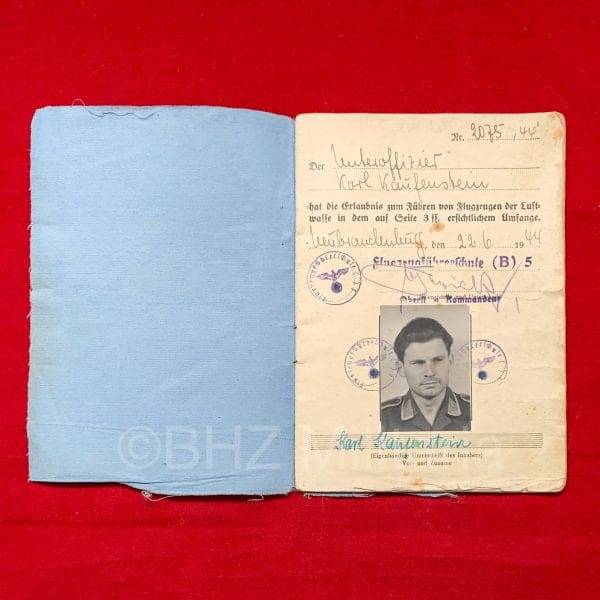 Nr. 2075, 44
Der Unteroffizier
Karl Kaufenstein
hat die Erlaubnis zum Führen von Flugzeugen der Luft-
waffe in dem auf Seite 3 ff. ersichtlichem Umfange.
Neubrandenburg, den 22.6. 1944
Flugzeugführerschule (B) 5
Oberst u Kommandeur
Karl Kaufenstein
(Eigenhändige Unterschrift des Inhabers)
Vor- und Zuname
©BHZ